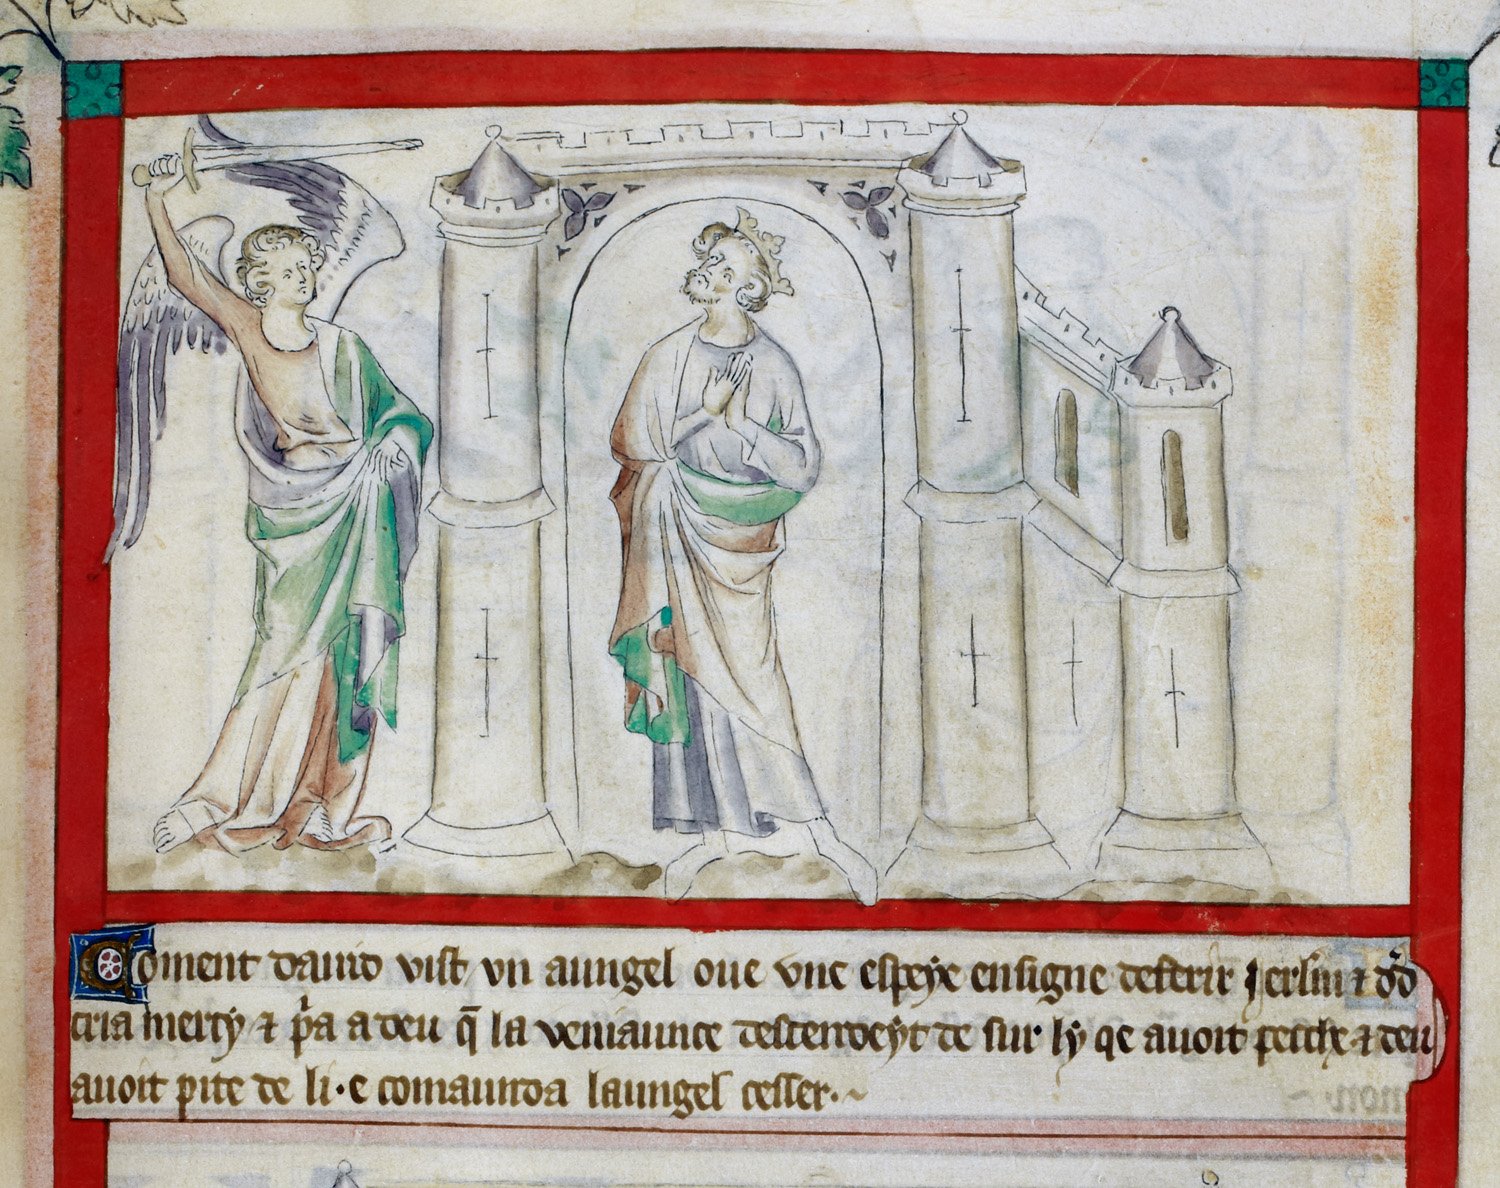 Coment dauid vist vn aungel oue vne espeye ensigne de ferir Jerlm & dd
cria mercy & p̃a a deu q̃ la veniaunce descendeyt de sur ly qe auoit pecche & deu
auoit pite de li · e comaunda laungel cesser · ~